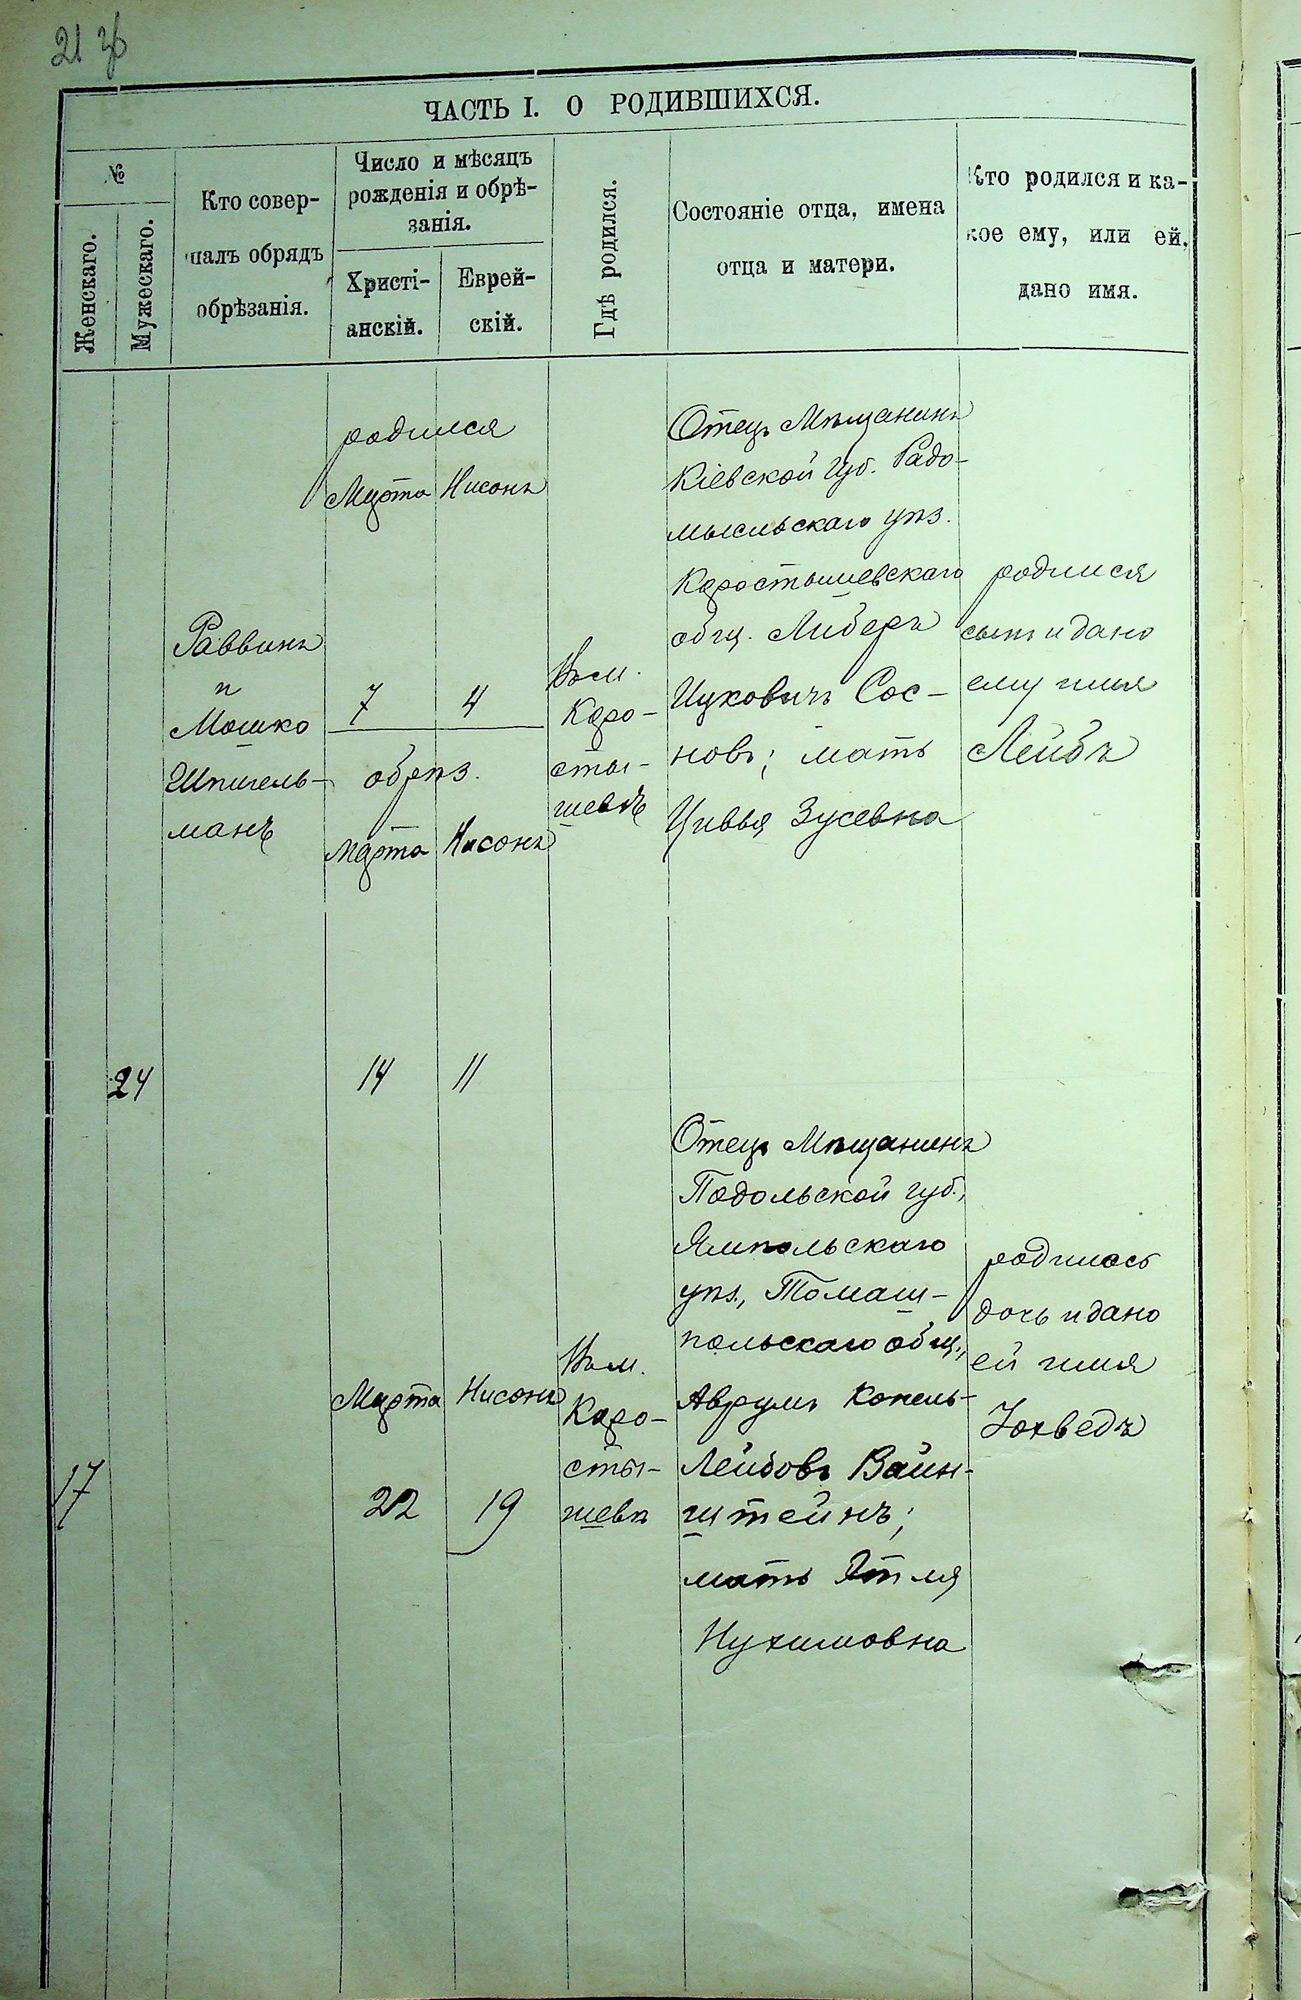 21
ЧАСТЬ I. О РОДИВШИХСЯ.
№
Женскаго.
Мужескаго.
Кто совер-
шалъ обрядъ
обрѣзанія.
Число и мѣсяцъ
рожденія и обрѣ-
занія.
Христі-
анскій.
Еврей-
скій.
Гдѣ родился.
Состояніе отца, имена
отца и матери.
Кто родился и ка-
кое ему, или ей,
дано имя.
24
Раввинъ
и
Мошко
Шпигель-
манъ
родился
Марта Нисонъ
7 4
обрѣз.
Марта Нисонъ
14 11
Въ м.
Коро-
сты-
шевѣ
Отецъ Мѣщанинъ
Кіевской губ. Радо-
мысльскаго уѣз.
Коростышевскаго
общ. Либеръ
Ицковичъ Сос-
новъ; мать
Цивья Зусевна
родился
сынъ и дано
ему имя
Лейбъ
17
Марта Нисонъ
22 19
Въ м.
Коро-
сты-
шевѣ
Отецъ Мѣщанинъ
Подольской губ.,
Ямпольскаго
уѣз., Томаш-
польскаго общ.,
Аврумъ Копель-
Лейбовъ Вайн-
штейнъ;
мать Этля
Нухимовна
родилась
дочь и дано
ей имя
Йохведъ